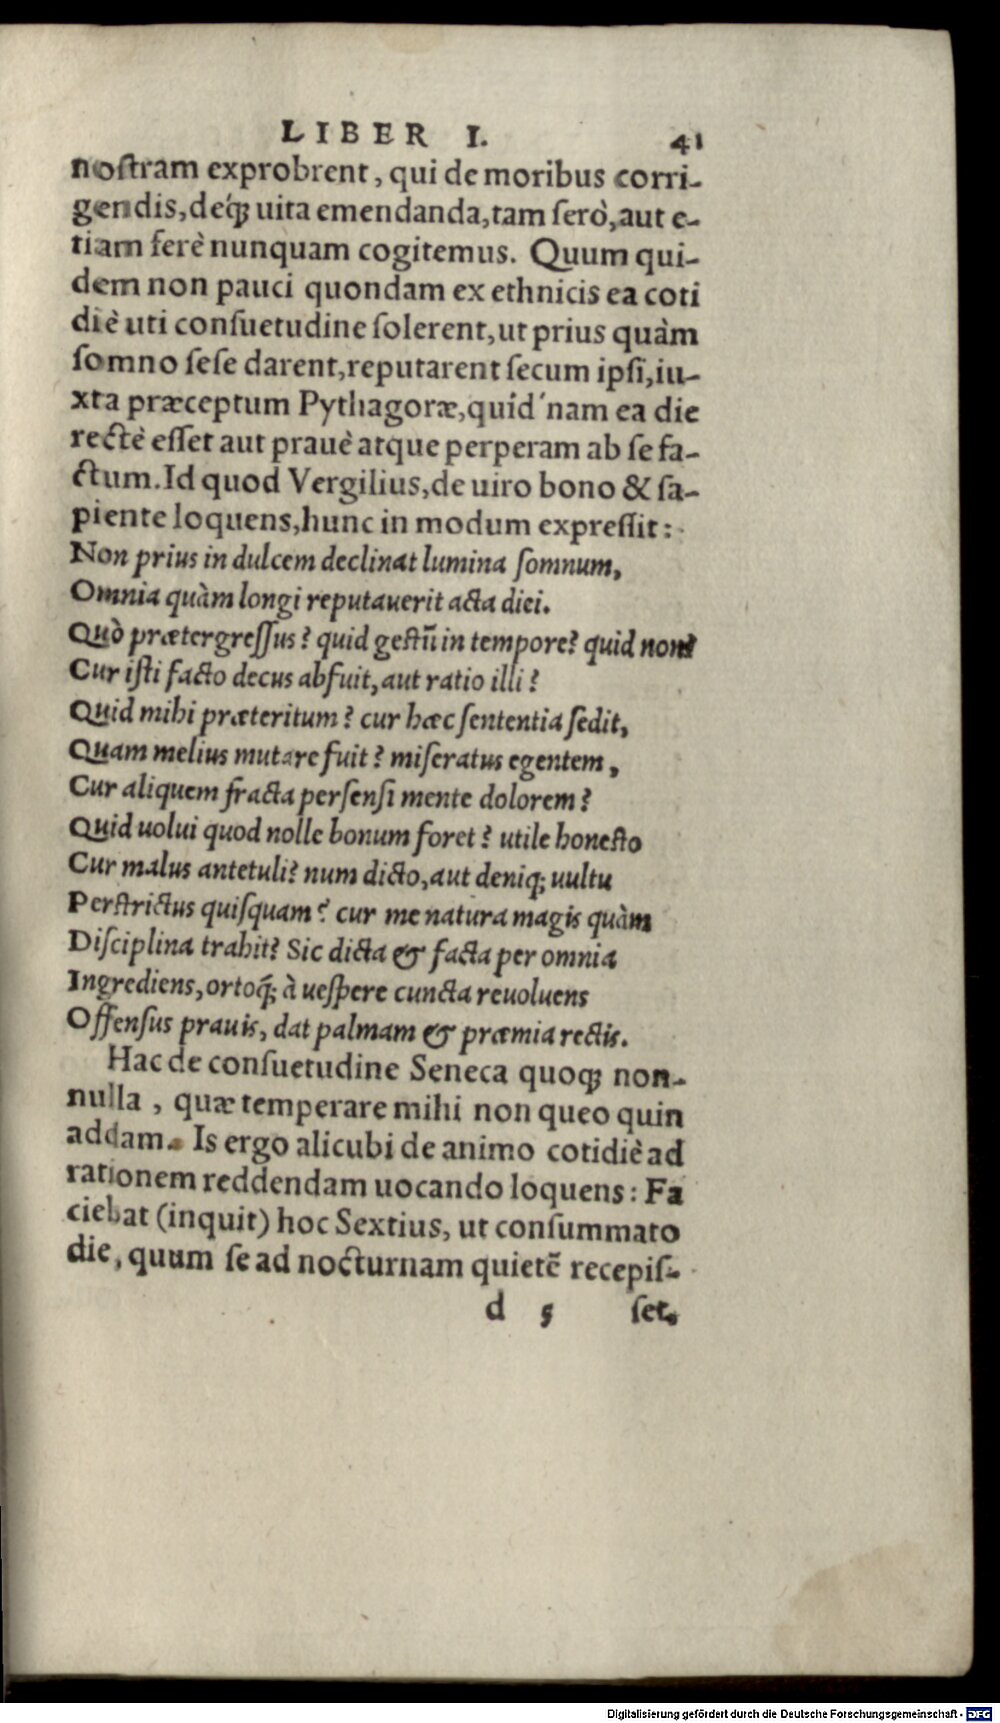 LIBER I. 41
noſtram exprobrent, qui de moribus corri-
gendis, deq́; uita emendanda, tam ſerò, aut e-
tiam ferè nunquam cogitemus. Quum qui-
dem non pauci quondam ex ethnicis ea coti
diè uti conſuetudine ſolerent, ut prius quàm
ſomno ſeſe darent, reputarent ſecum ipſi, iu-
xta præceptum Pythagoræ, quíd'nam ea die
rectè eſſet aut prauè atque perperam ab ſe fa-
ctum. Id quod Vergilius, de uiro bono & ſa-
piente loquens, hunc in modum expreſſit:
Non prius in dulcem declinat lumina ſomnum,
Omnia quàm longi reputauerit acta diei.
Quò prætergreſſus? quid geſtū in tempore? quid non?
Cur iſti facto decus abfuit, aut ratio illi?
Quid mihi præteritum? cur hæc ſententia ſedit,
Quam melius mutare fuit? miſeratus egentem,
Cur aliquem fracta perſenſi mente dolorem?
Quid uolui quod nolle bonum foret? utile honeſto
Cur malus antetuli? num dicto, aut deniq; uultu
Perſtrictus quiſquam? cur me natura magis quàm
Diſciplina trahit? Sic dicta & facta per omnia
Ingrediens, ortoq́; à ueſpere cuncta reuoluens
Offenſus prauis, dat palmam & præmia rectis.
Hac de conſuetudine Seneca quoq; non-
nulla, quæ temperare mihi non queo quin
addam. Is ergo alicubi de animo cotidiè ad
rationem reddendam uocando loquens: Fa
ciebat (inquit) hoc Sextius, ut conſummato
die, quum ſe ad nocturnam quietē recepiſ-
d 5 ſet,
Digitalisierung gefördert durch die Deutsche Forschungsgemeinschaft - DFG